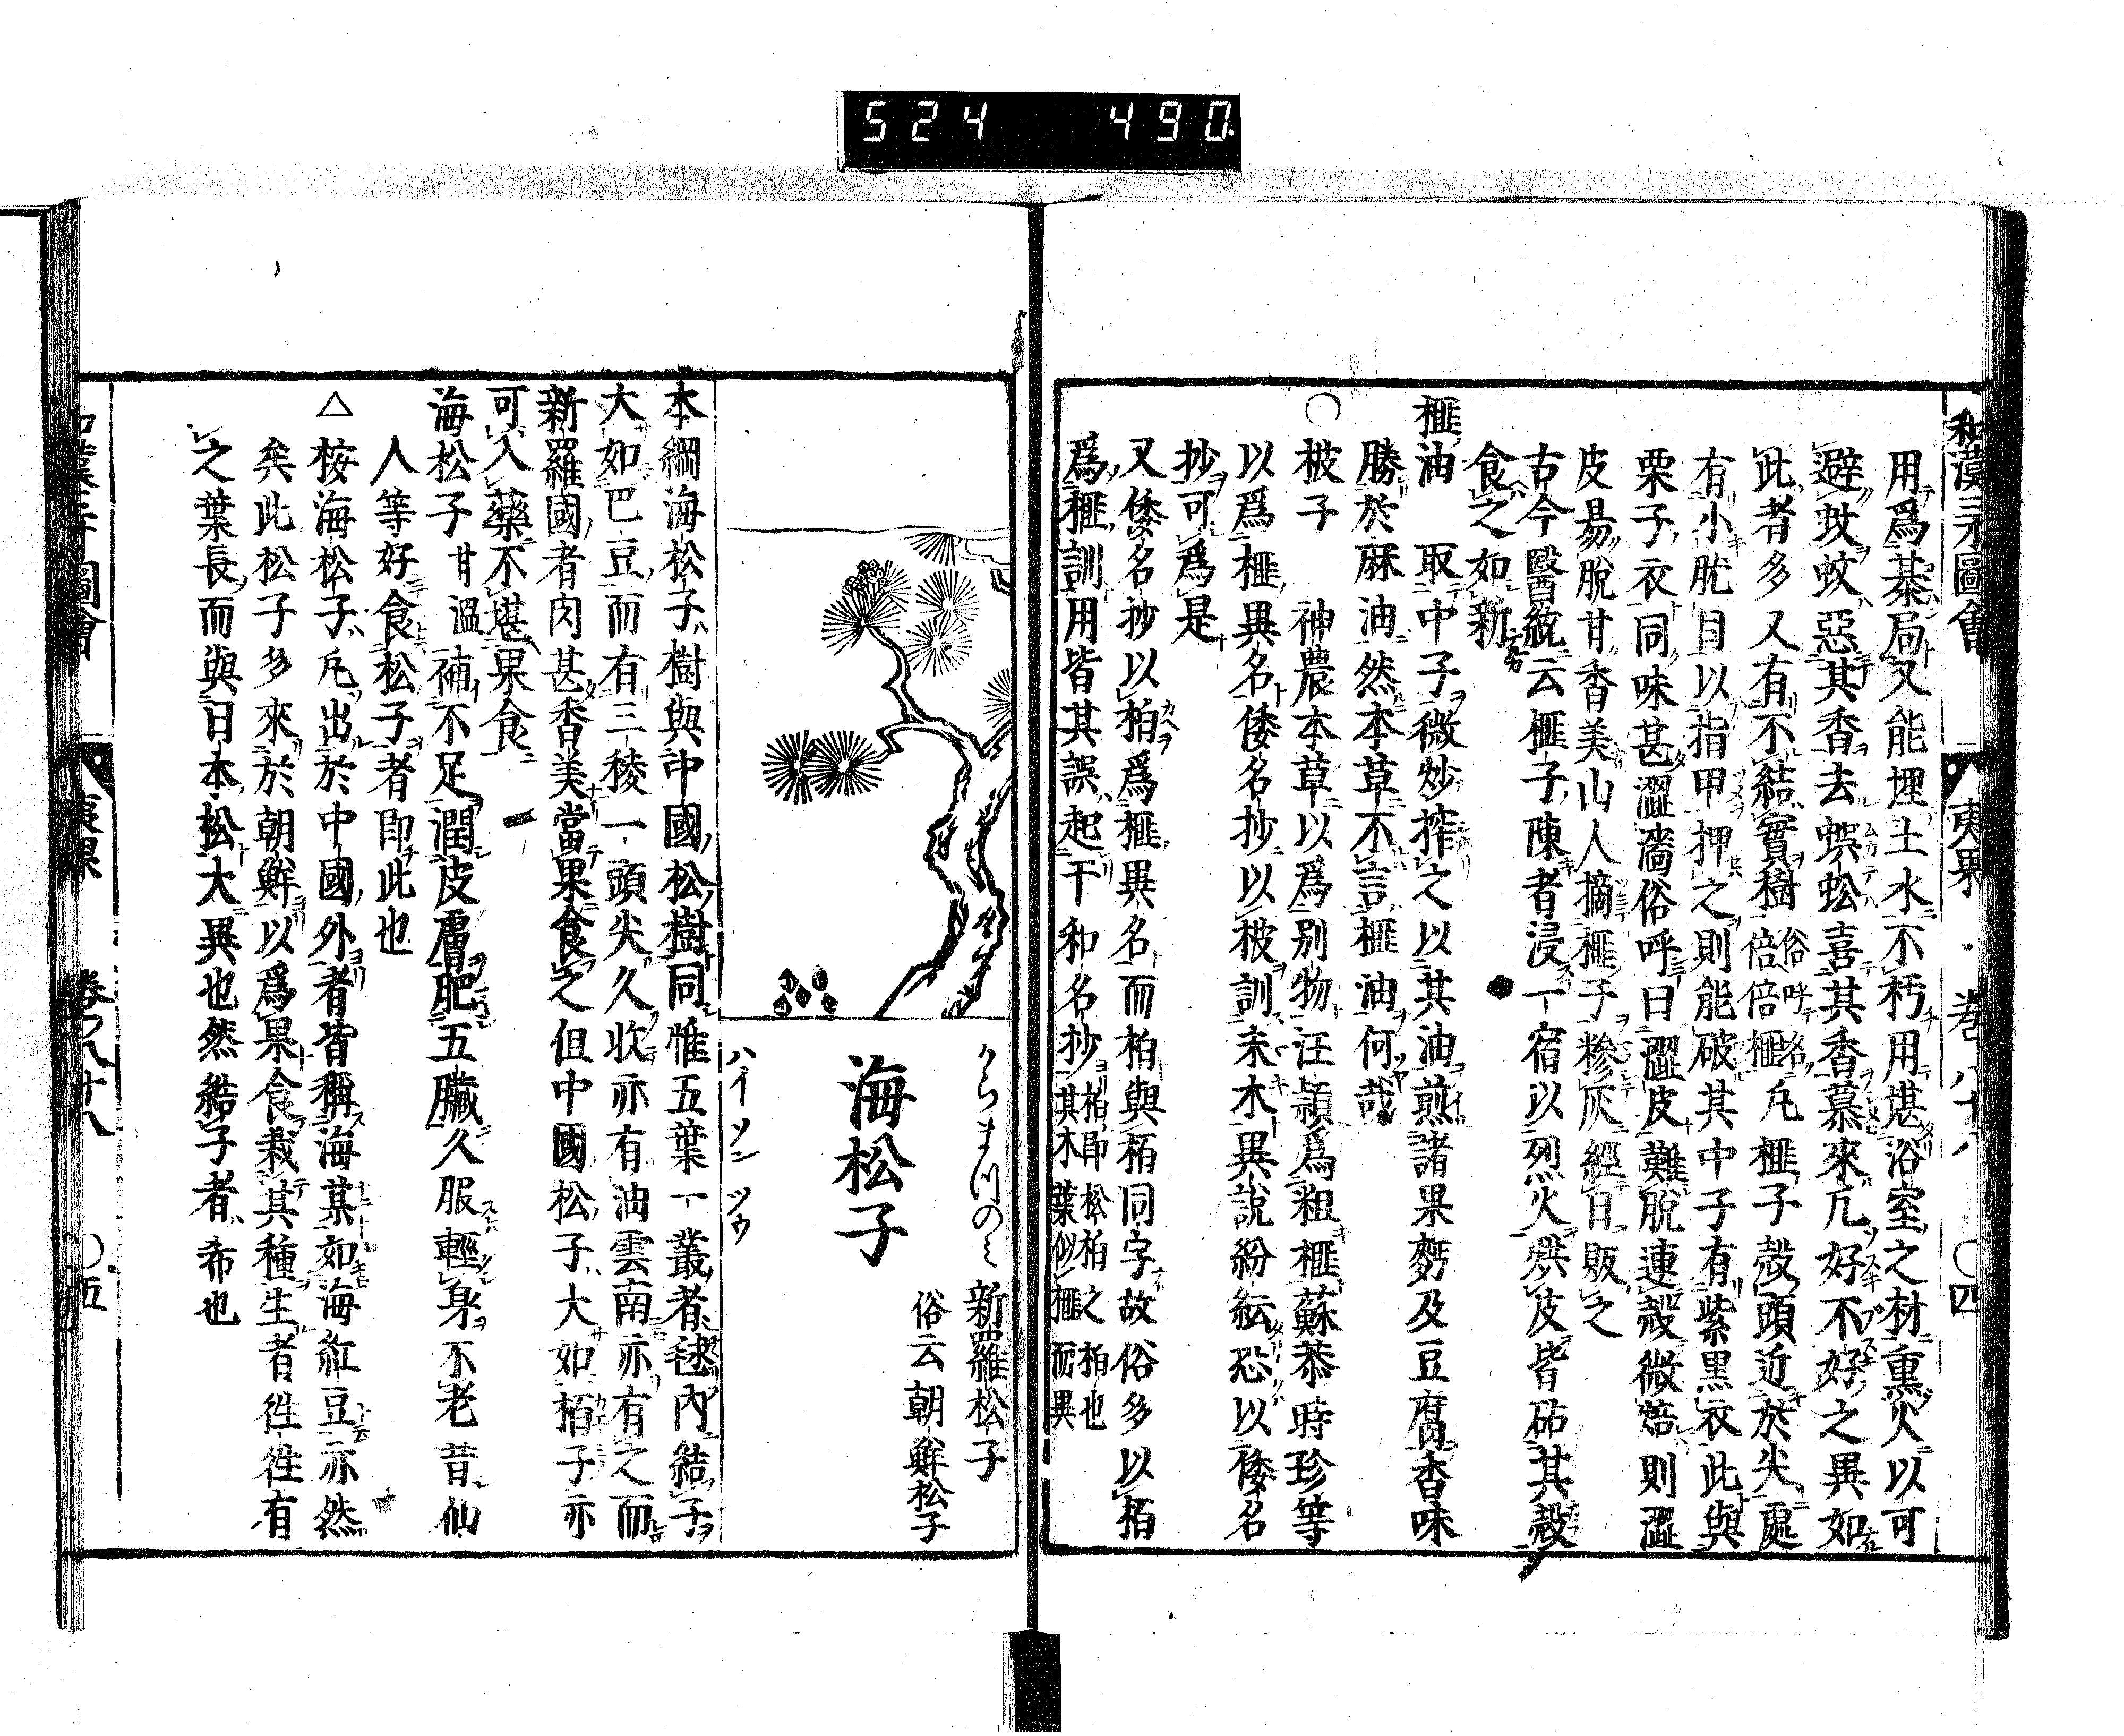 524 490
和漢三才圖會 夷果 卷八十八 ○四
用爲棊局又能埋土水不朽用堪浴室之材熏火以可
避蚊蚊惡其香去蜈蚣喜其香慕來凡好不好之異如
此者多又有不結實樹俗呼名倍倍榧凡榧子殼頭近於尖處
有小肬目以指甲押之則能破其中子有紫黑衣此與
栗子衣同味甚澀濇俗呼曰澀皮難脫連殼微焙則澀
皮昜脫甘香美山人摘榧子糝灰經日販之
古今醫統云榧子陳者浸一宿以烈火烘皮皆砧其殼
食之如新
榧油 取中子微炒搾之以其油煎諸果麪及豆腐香味
勝於麻油然本草不言榧油何哉
○柀子 神農本草以爲別物汪頴爲粗榧蘇恭時珍等
以爲榧異名倭名抄以柀訓末木異說紛紜恐以倭名
抄可爲是
又倭名抄以栢爲榧異名而柏與栢同字故俗多以栢
爲榧訓用皆其誤起于和名抄柏卽松柏之柏也其木葉似榧而異
からまつのミ
海松子
新羅松子
俗云朝鮮松子
ハイソンツウ
本綱海松子樹與中國松樹同惟五葉一叢者毬內結子
大如巴豆而有三稜一頭尖久收亦有油雲南亦有之而
新羅國者肉甚香美當果食之但中國松子大如栢子亦
可入藥不堪果食
海松子甘溫補不足潤皮膚肥五臟久服輕身不老昔仙
人等好食松子者卽此也
△按海松子凡出於中國外者皆稱海某如海紅豆亦然
矣此松子多來於朝鮮以爲果食栽其種生者徃徃有
之葉長而與日本松大異也然結子者希也
和漢三才圖會 夷果 卷之八十八 ○五